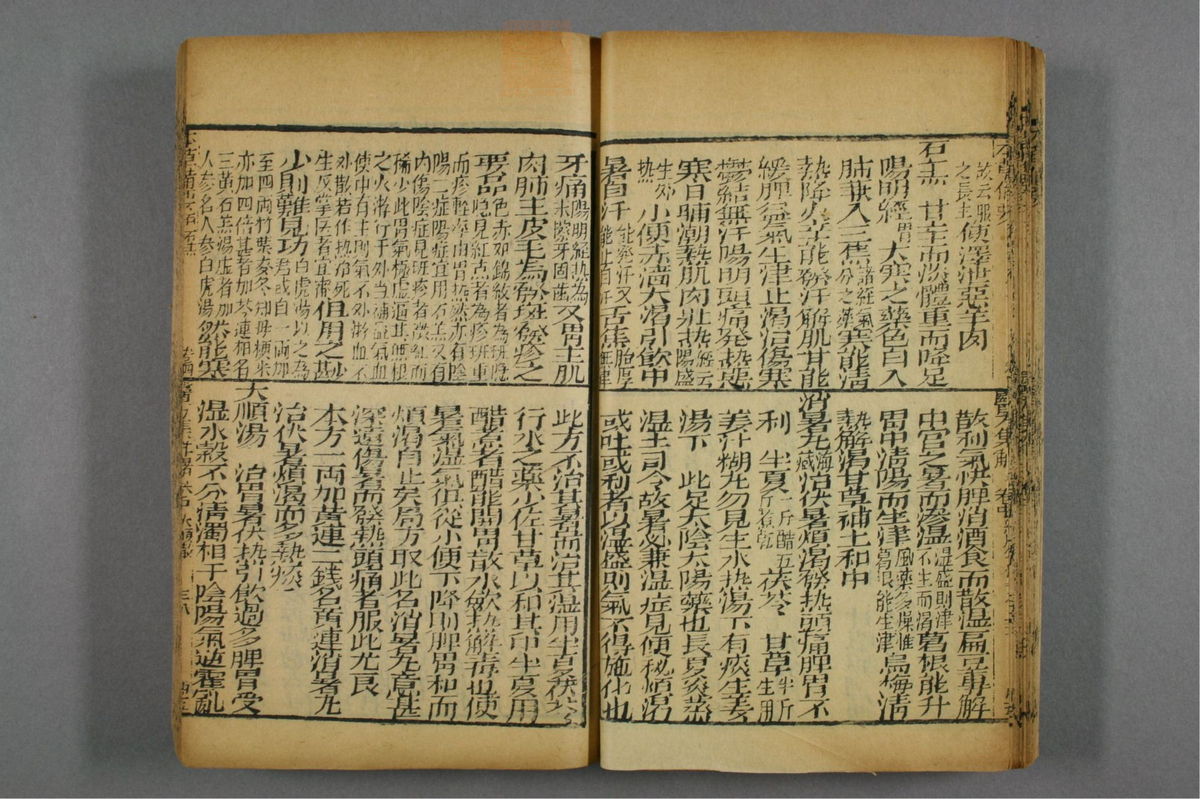 故云服之長生使澤瀉惡羊肉
石羔 甘辛而淡體重而降足
陽明經胃大寒之藥色白入
肺兼入三焦諸經氣分之藥寒能清
熱降火辛能發汗解肌甘能
緩脾益氣生津止渴治傷寒
鬱結無汗陽明頭痛発热惡
寒日晡潮熱肌肉壯热經云陽盛
生外热小便赤濇大渴引飲中
暑自汗能發汗又能止自汗舌焦胎厚無津
散利氣快脾消酒食而散湿扁豆專解
中宮之暑而滲湿湿盛則津不生而渴葛根能升
胃中清陽而生津風藥多燥惟葛根能生津烏梅清
熱解渴甘草補土和中
消暑丸海藏治伏暑煩渴發热頭痛脾胃不
利 半夏一斤醋五斤煮乾茯苓 甘草半斤生用
姜汁糊丸勿見生水热湯下有痰生姜
湯下 此足太陰太陽藥也長夏炎蒸
湿土司令故暑必兼湿症見便秘煩渴
或吐或利者以湿盛則氣不得施化也
牙痛陽明經热為末擦牙固齒又胃主肌
肉肺主皮毛為發斑發疹之
要品色赤如錦紋者為斑隱隱見紅点者為疹斑重
而疹輕率由胃热然亦有陰
陽二症陽症宜用石羔又有
內傷陰症見斑疹者微紅而
稀少此胃氣極虛逼其無根
之火游行于外当補益氣血
使中有主則氣不外游血不
外散若作热治死
生反掌医者宜審但用之尠
少則難見功白虎湯以之為君或自一兩加
至四兩竹葉麥冬知母粳米
亦加四倍甚者加芩連柏名
三黄石羔湯虛者加
人參名人參白虎湯然能寒
此方不治其暑而治其湿用半夏茯苓
行水之藥少佐甘草以和其中半夏用
醋煮者醋能開胃散水歛热解毒也使
暑氣湿氣俱從小便下降則脾胃和而
煩渴自止矣局方取此名消暑丸意甚
深遠傷暑而發热頭痛者服此尤良
本方一兩加黄連二錢名黄連消暑丸
治伏暑煩渴而多热痰
大順湯 治冒暑伏热引飲過多脾胃受
湿水穀不分清濁相干陰陽氣逆霍亂